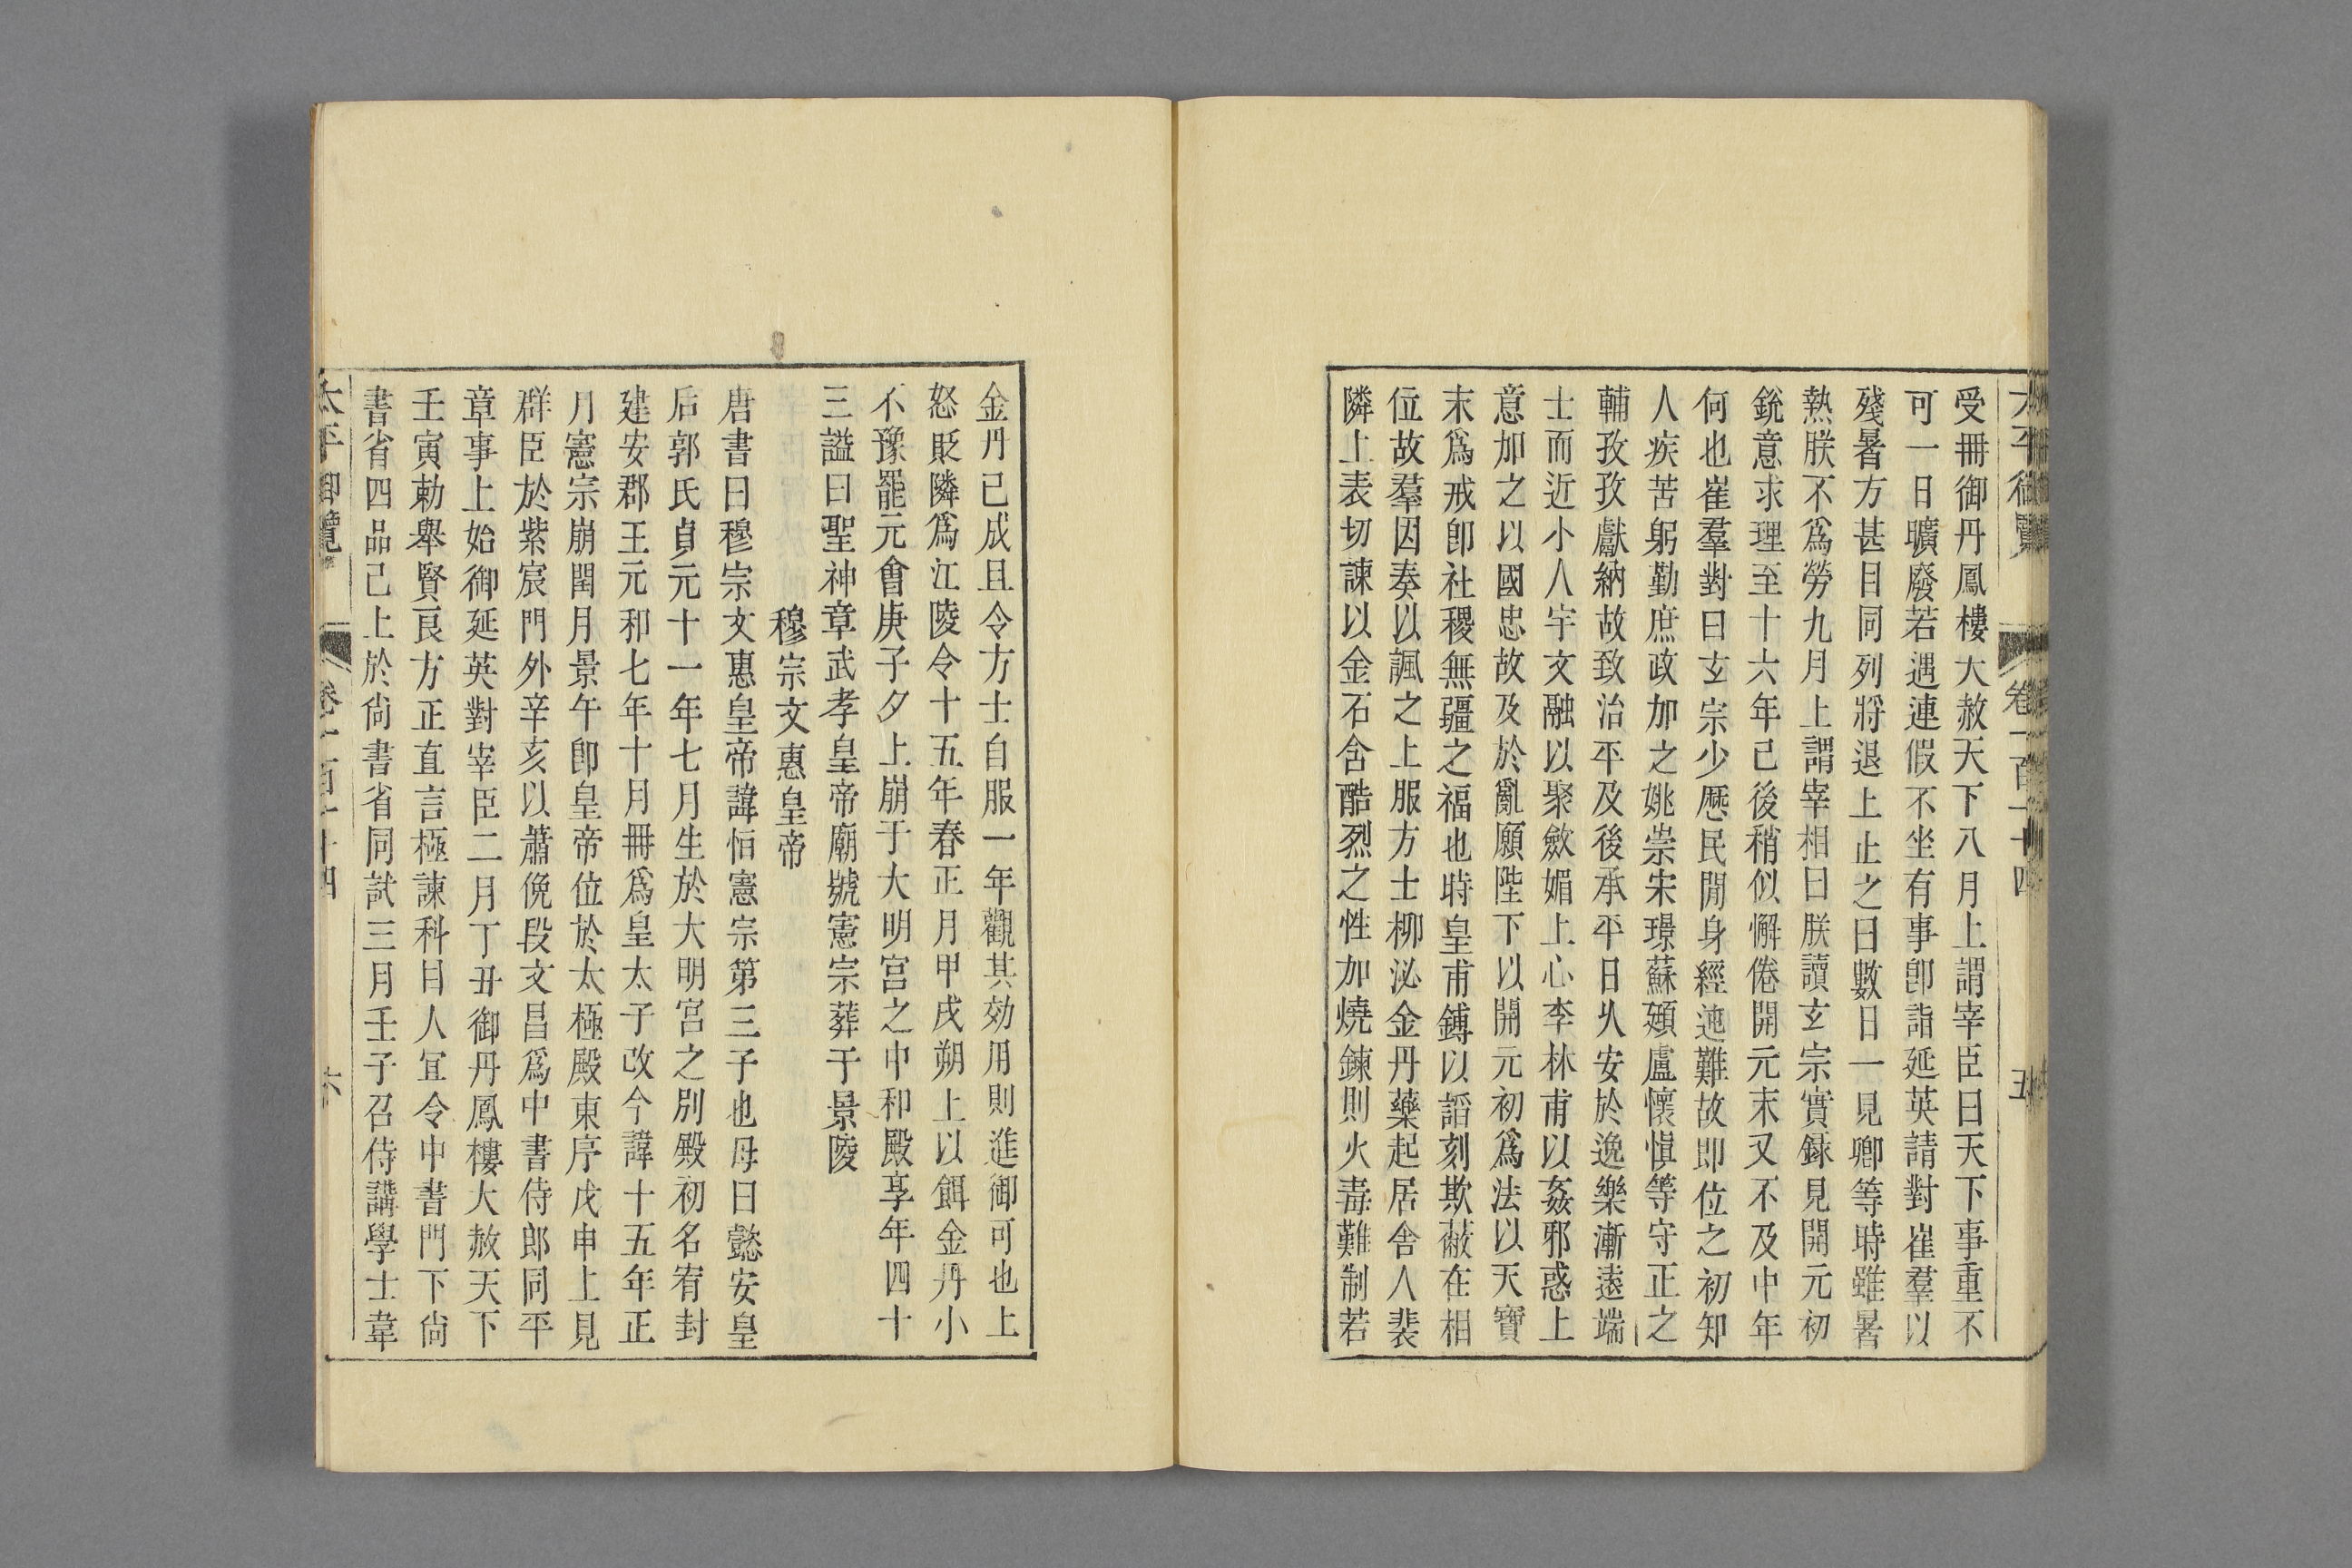 受冊御丹鳳樓大赦天下八月上謂宰臣曰天下事重不
可一日曠廢若遇連假不坐有事卽詣延英請對崔羣以
殘暑方甚目同列將退上止之曰數日一見卿等時雖暑
熱朕不爲勞九月上謂宰相曰朕讀玄宗實録見開元初
銳意求理至十六年已後稍似懈倦開元末又不及中年
何也崔羣對曰玄宗少歷民閒身經迍難故即位之初知
人疾苦躬勤庶政加之姚崇宋璟蘇頲盧懷慎等守正之
輔孜孜獻納故致治平及後承平日久安於逸樂漸遠端
士而近小人宇文融以聚斂媚上心李林甫以姦邪惑上
意加之以國忠故及於亂願陛下以開元初爲法以天寶
末爲戒卽社稷無疆之福也時皇甫鎛以謟刻欺蔽在相
位故羣因奏以諷之上服方士柳泌金丹藥起居舍人裴
隣上表切諫以金石含酷烈之性加燒鍊則火毒難制若
金丹已成且令方士自服一年觀其効用則進御可也上
怒貶隣爲江陵令十五年春正月甲戌朔上以餌金丹小
不豫罷元會庚子夕上崩于大明宮之中和殿享年四十
三謚曰聖神章武孝皇帝廟號憲宗葬于景陵
穆宗文惠皇帝
唐書曰穆宗文惠皇帝諱恒憲宗第三子也母曰懿安皇
后郭氏貞元十一年七月生於大明宮之別殿初名宥封
建安郡王元和七年十月冊爲皇太子改今諱十五年正
月憲宗崩閏月景午卽皇帝位於太極殿東序戊申上見
群臣於紫宸門外辛亥以蕭俛段文昌爲中書侍郎同平
章事上始御延英對宰臣二月丁丑御丹鳳樓大赦天下
壬寅勅舉賢良方正直言極諫科目人宜令中書門下尙
書省四品已上於尙書省同試三月壬子召侍講學士韋
太平御覽
卷一百一十四
六